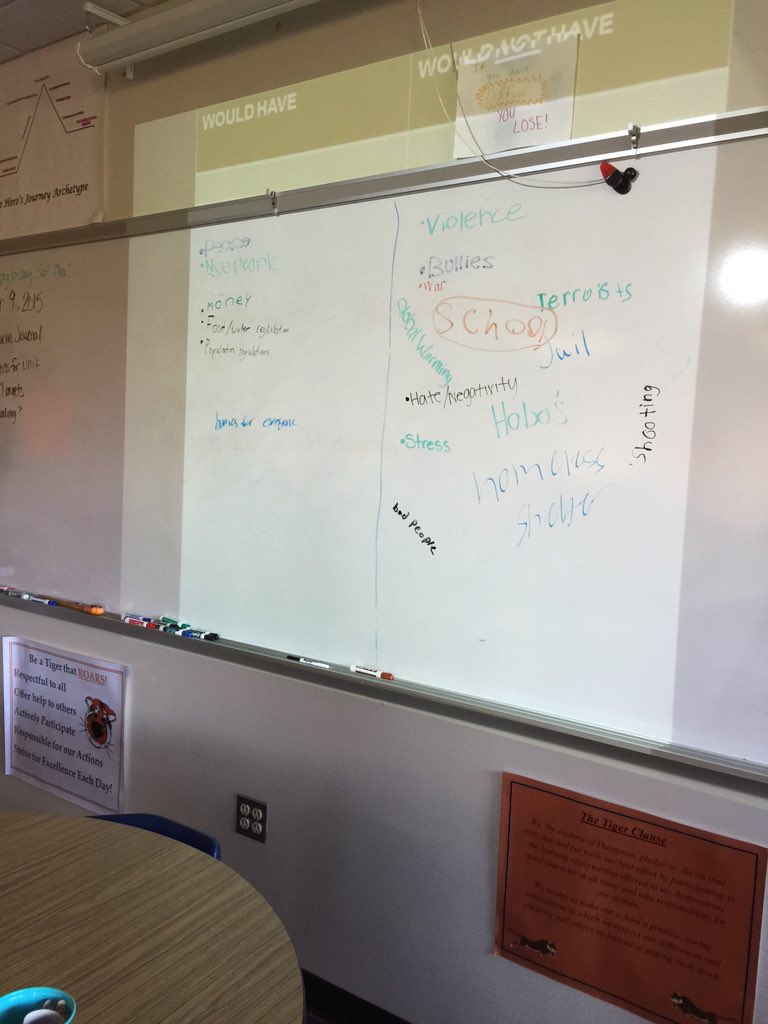 WOULD HAVE
WOULD NOT HAVE
If
you don't
YOU
LOSE!
Hero's Journey Archetype
9, 2015
Journal
Unit
Targets
•Peace
•Nice people
•money
•Food/water regulation
•Population regulations
homes for everyone
•Violence
•Bullies
•War
School
Terroists
Jail
Global Warming
•Hate/Negativity
Hobo's
•Stress
homeless
shelter
•shooting
bad people
Be a Tiger that ROARS!
Respectful to all
Offer help to others
Actively Participate
Responsible for our Actions
Strive for Excellence Each Day!
The Tiger Clause
We, the students of Thompson, pledge to: Be on time
every day and put forth our best effort by participating in
the learning opportunities offered to us; demonstrate
good character at all times and take responsibility for
our actions.
We pledge to make our school a positive, caring
environment in which we respect our differences and
where we pull others up instead of putting them down.